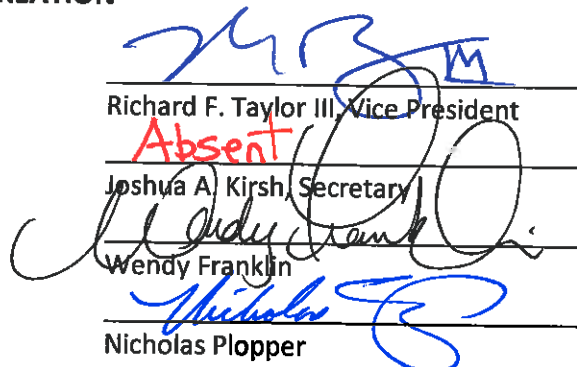 Richard F. Taylor III, Vice President
Absent
Joshua A. Kirsh, Secretary
Wendy Franklin
Wendy Franklin
Nicholas
Nicholas Plopper